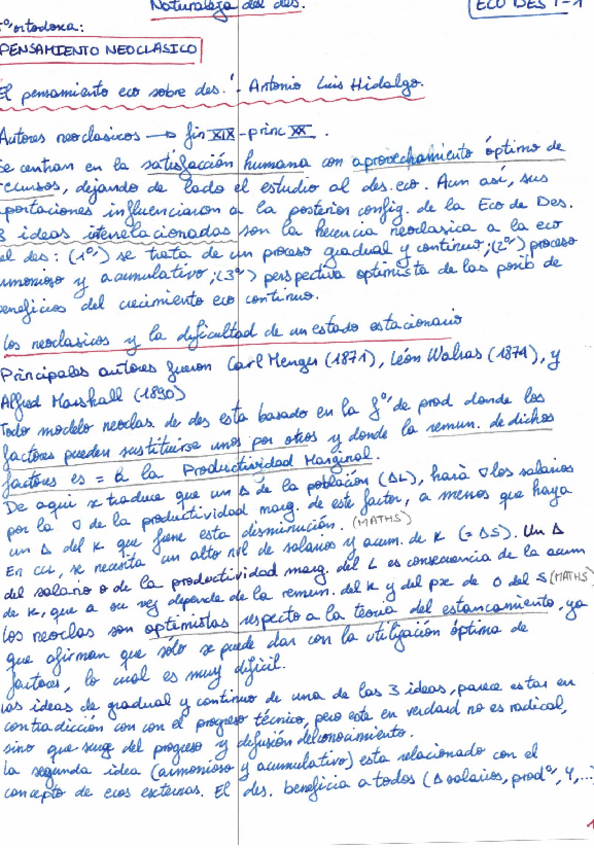 Naturaleza del des.
ECO DES T-1
Tª ortodoxa:
PENSAMIENTO NEOCLASICO
El pensamiento eco sobre des. - Antonio Luis Hidalgo.
Autores neoclasicos → fin XIX - princ XX.
Se centran en la satisfacción humana con aprovechamiento óptimo de
recursos, dejando de lado el estudio al des. eco. Aun así, sus
aportaciones influenciaron a la posterior config. de la Eco de Des.
3 ideas interrelacionadas son la herencia neoclasica a la eco
del des: (1ª) se trata de un proceso gradual y continuo; (2ª) proceso
armonioso y acumulativo; (3ª) perspectiva optimista de las posib de
beneficios del crecimiento eco continuo.
Los neoclasicos y la dificultad de un estado estacionario
Principales autores fueron Carl Menger (1871), Léon Walras (1874), y
Alfred Marshall (1890)
Todo modelo neoclas. de des esta basado en la fº de prod donde los
factores pueden sustituirse unos por otros y donde la remun. de dichos
factores es = a la Productividad Marginal.
De aqui se traduce que un Δ de la población (ΔL), hará ∇ los salarios
por la ∇ de la productividad marg. de este factor, a menos que haya
un Δ del K que frene esta disminución. (MATHS)
En CCL, se necesita un alto nvl de salarios y acum. de K (= ΔS). Un Δ
del salario o de la productividad marg. del L es consecuencia de la acum
de K, que a su vez depende de la remun. del K y del px de O del S (MATHS)
Los neoclas son optimistas respecto a la teoria del estancamiento, ya
que afirman que sólo se puede dar con la utilización óptima de
factores, lo cual es muy difícil.
Las ideas de gradual y continuo de una de las 3 ideas, parece estar en
contradicción con con el progreso técnico, pero este en verdad no es radical,
sino que surge del progreso y difusión del conocimiento.
La segunda idea (armonioso y acumulativo) esta relacionado con el
concepto de ecos externas. El des. beneficia a todos (Δ salarios, prodº, Y,...)
1